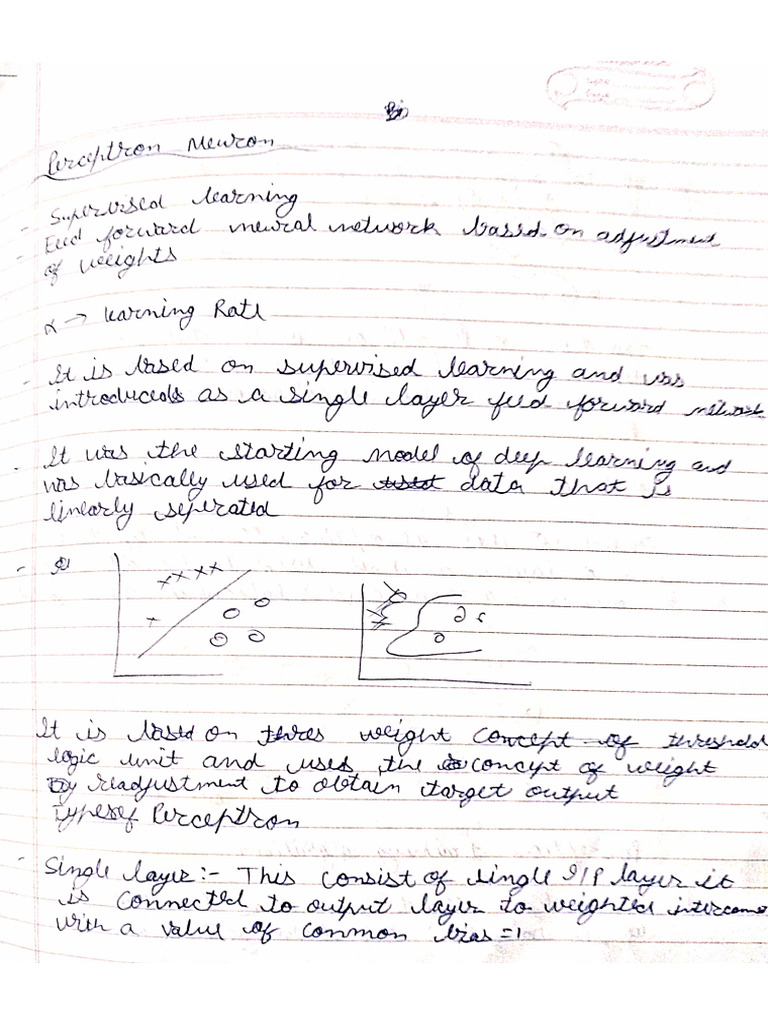 Perceptron Neuron
Supervised learning
Feed forward neural network based on adjustment
of weights
α → learning Rate
It is based on supervised learning and was
introduced as a single layer feed forward network
It was the starting model of deep learning and
was basically used for data that is
linearly seperated
It is based on weight concept of threshold
logic unit and uses the concept of weight
by readjustment to obtain target output
Types of Perceptron
Single layer :- This consist of single I/P layer it
is connected to output layer to weighted
with a value of common bias = 1